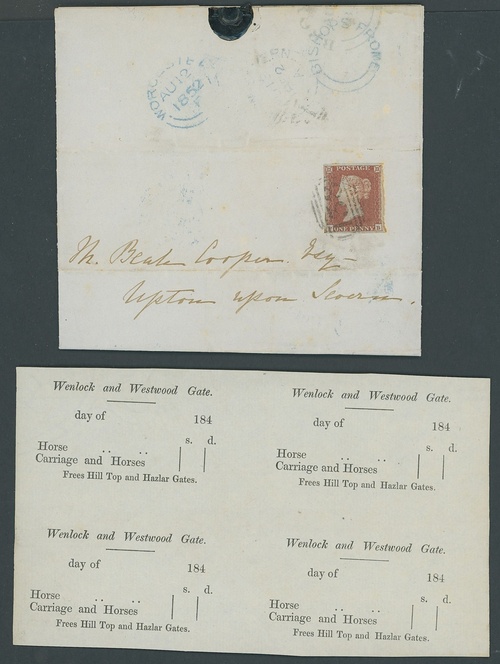 WORCESTER
AU 12
1852
BISHOPS FROME
POSTAGE
ONE PENNY
Cooper Esq
Upton upon Severn.
Wenlock and Westwood Gate.
day of 184
s. d.
Horse .. ..
Carriage and Horses
Frees Hill Top and Hazlar Gates.
Wenlock and Westwood Gate.
day of 184
s. d.
Horse .. ..
Carriage and Horses
Frees Hill Top and Hazlar Gates.
Wenlock and Westwood Gate.
day of 184
s. d.
Horse .. ..
Carriage and Horses
Frees Hill Top and Hazlar Gates.
Wenlock and Westwood Gate.
day of 184
s. d.
Horse .. ..
Carriage and Horses
Frees Hill Top and Hazlar Gates.